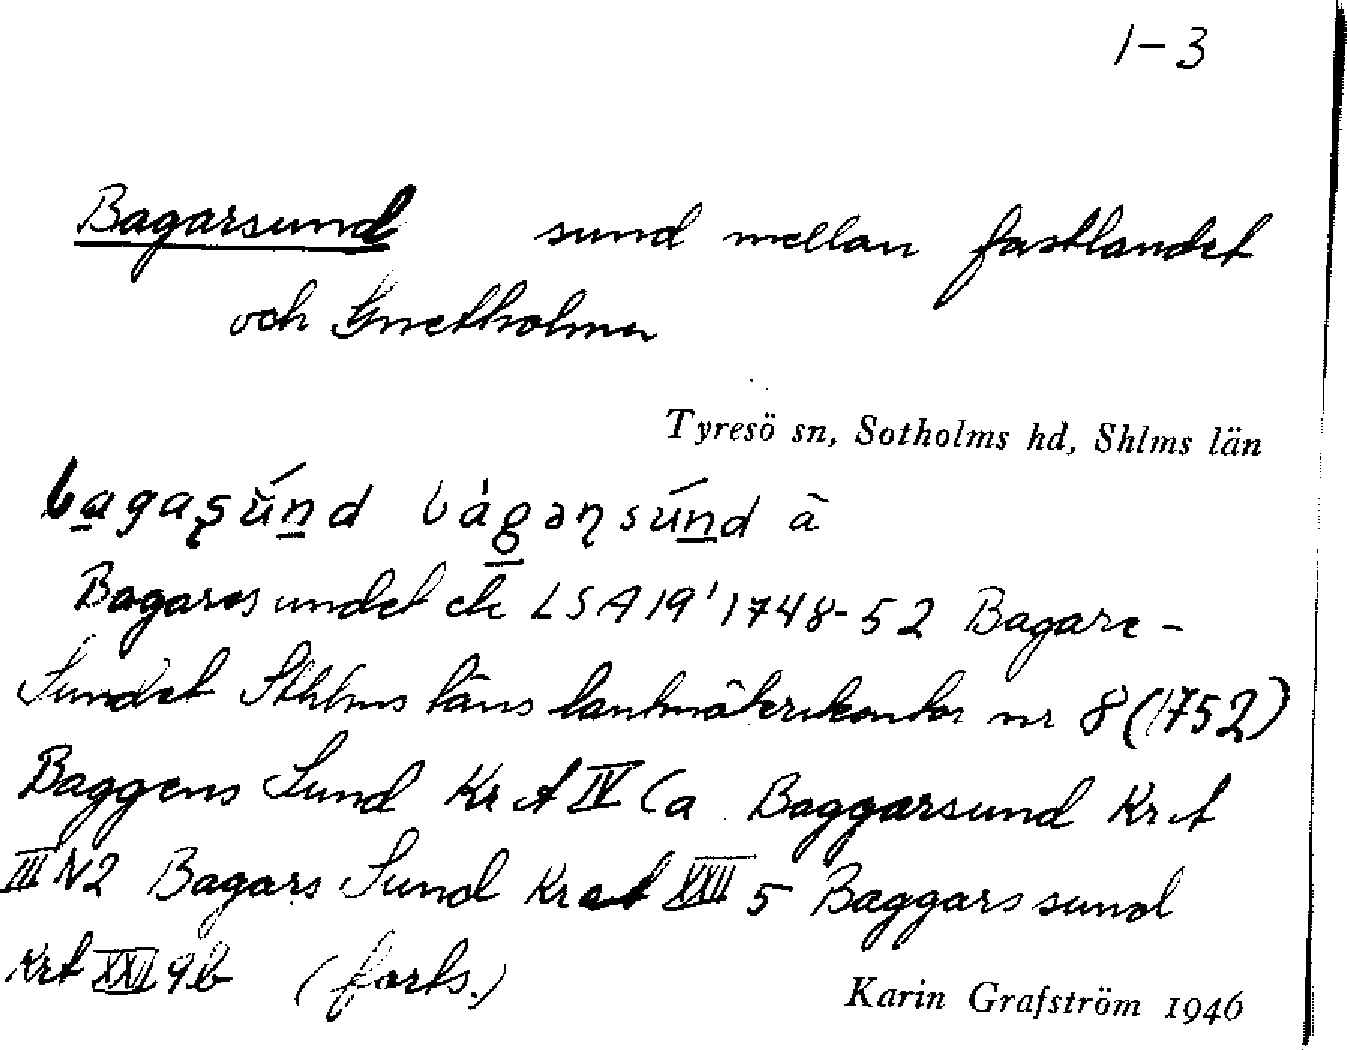 1-3
Bagarsund sund mellan fastlandet
och Gnetholmen
Tyresö sn, Sotholms hd, Shlms län
bagaʂúnd bágəɳsúnd ā
Bagaresundet ek LSA 19' 1748-52 Bagare-
Sundet Sthlms läns lantmäterikontor nr 8 (1752)
Baggens Sund Krt IV Ca Baggarsund Krt
III N2 Bagars Sund Krt XXII 5 Baggarssund
Krt XXII 9b (forts.)
Karin Grafström 1946